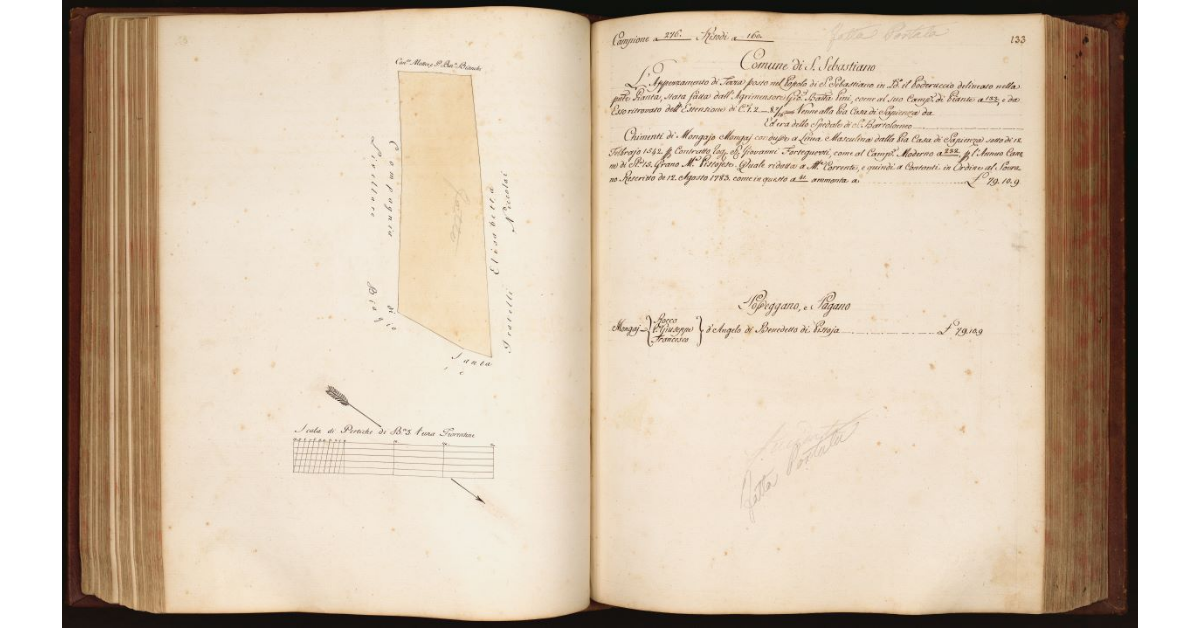 Cav.e Matteo, e P. Bar.o Bianchi
Compagnia
Livellare
di
Biagio
Elisabetta
Niccolai
Gherelli
Santa
Scala di Pertiche di B.a 5. l'una Fiorentine
Campione a 276. Rendi a 160.
Fatta Portata
133
Comune di S. Sebastiano
L'Appezzamento di Terra posto nel Popolo di S. Sebastiano in L.o d. Poderuccio delineato nella
p.nte Pianta, stata fatta dall'Agrimensore Gio. Batta
come al suo Camp.e di Piante a 133, e da
Esso ritrovato dell'Estensione di C. 1. 2
Venne alla Pia Casa di Sapienza da
Ed era dello Spedale di S. Bartolomeo
Chimenti di Mongajo Mongaj condusse a Linea Masculina dalla Pia Casa di Sapienza sotto di 12
Febbrajo 1542. Contratto Rog. Giovanni Forteguerri, come al Camp.e Moderno a 252, l'Annuo Cano-
ne di St. 13. Grano M.a Pistojese. Quale ridotta a M.a Corrente, e quindi a Contanti in Ordine al Sovra-
no Rescritto de 12. Agosto 1783. come in questo a 41 ammonta a £ 79.10.9
Posseggano, e Pagano
Mongaj Rocco
Giuseppe
Francesco
d'Angelo di Benedetto di Pistoja £ 79.10.9
Fatta Portata